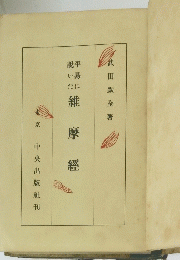 武田豊淮著
平易に
説いた
維摩經
東京 中央出版社刊